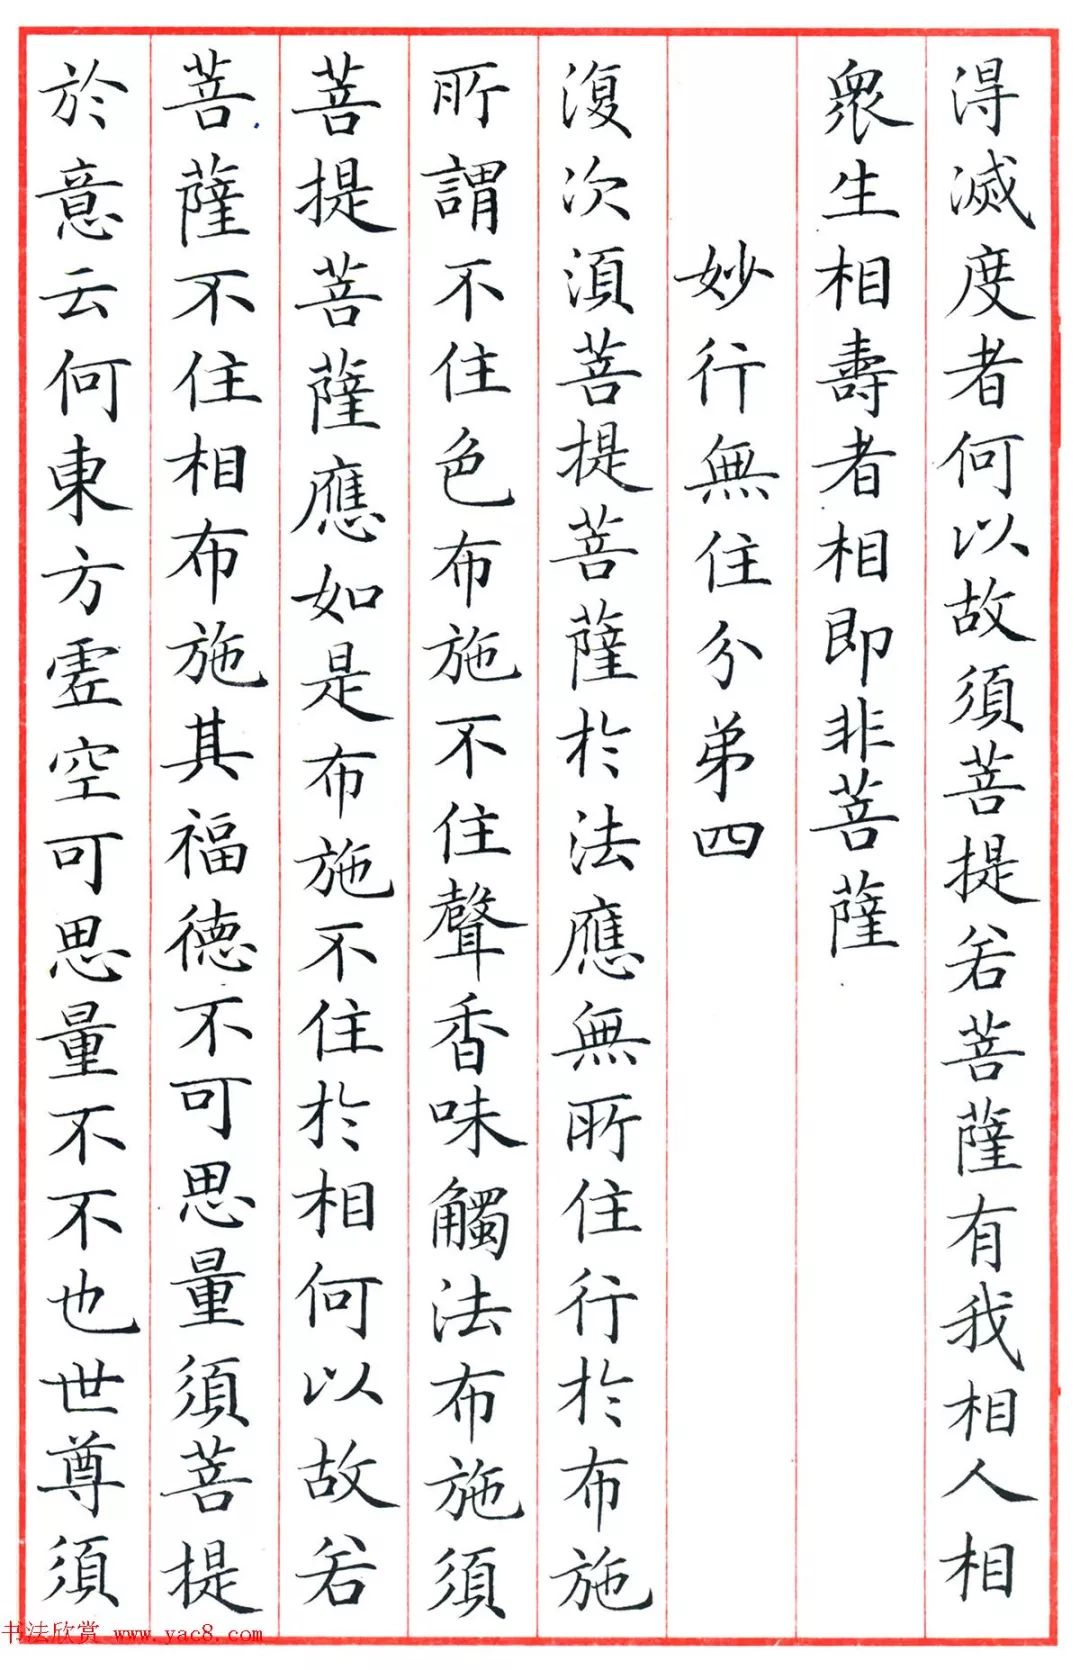 得滅度者何以故須菩提若菩薩有我相人相
衆生相壽者相即非菩薩
妙行無住分弟四
復次須菩提菩薩於法應無所住行於布施
所謂不住色布施不住聲香味觸法布施須
菩提菩薩應如是布施不住於相何以故若
菩薩不住相布施其福德不可思量須菩提
於意云何東方虛空可思量不不也世尊須
书法欣赏 www.yac8.com